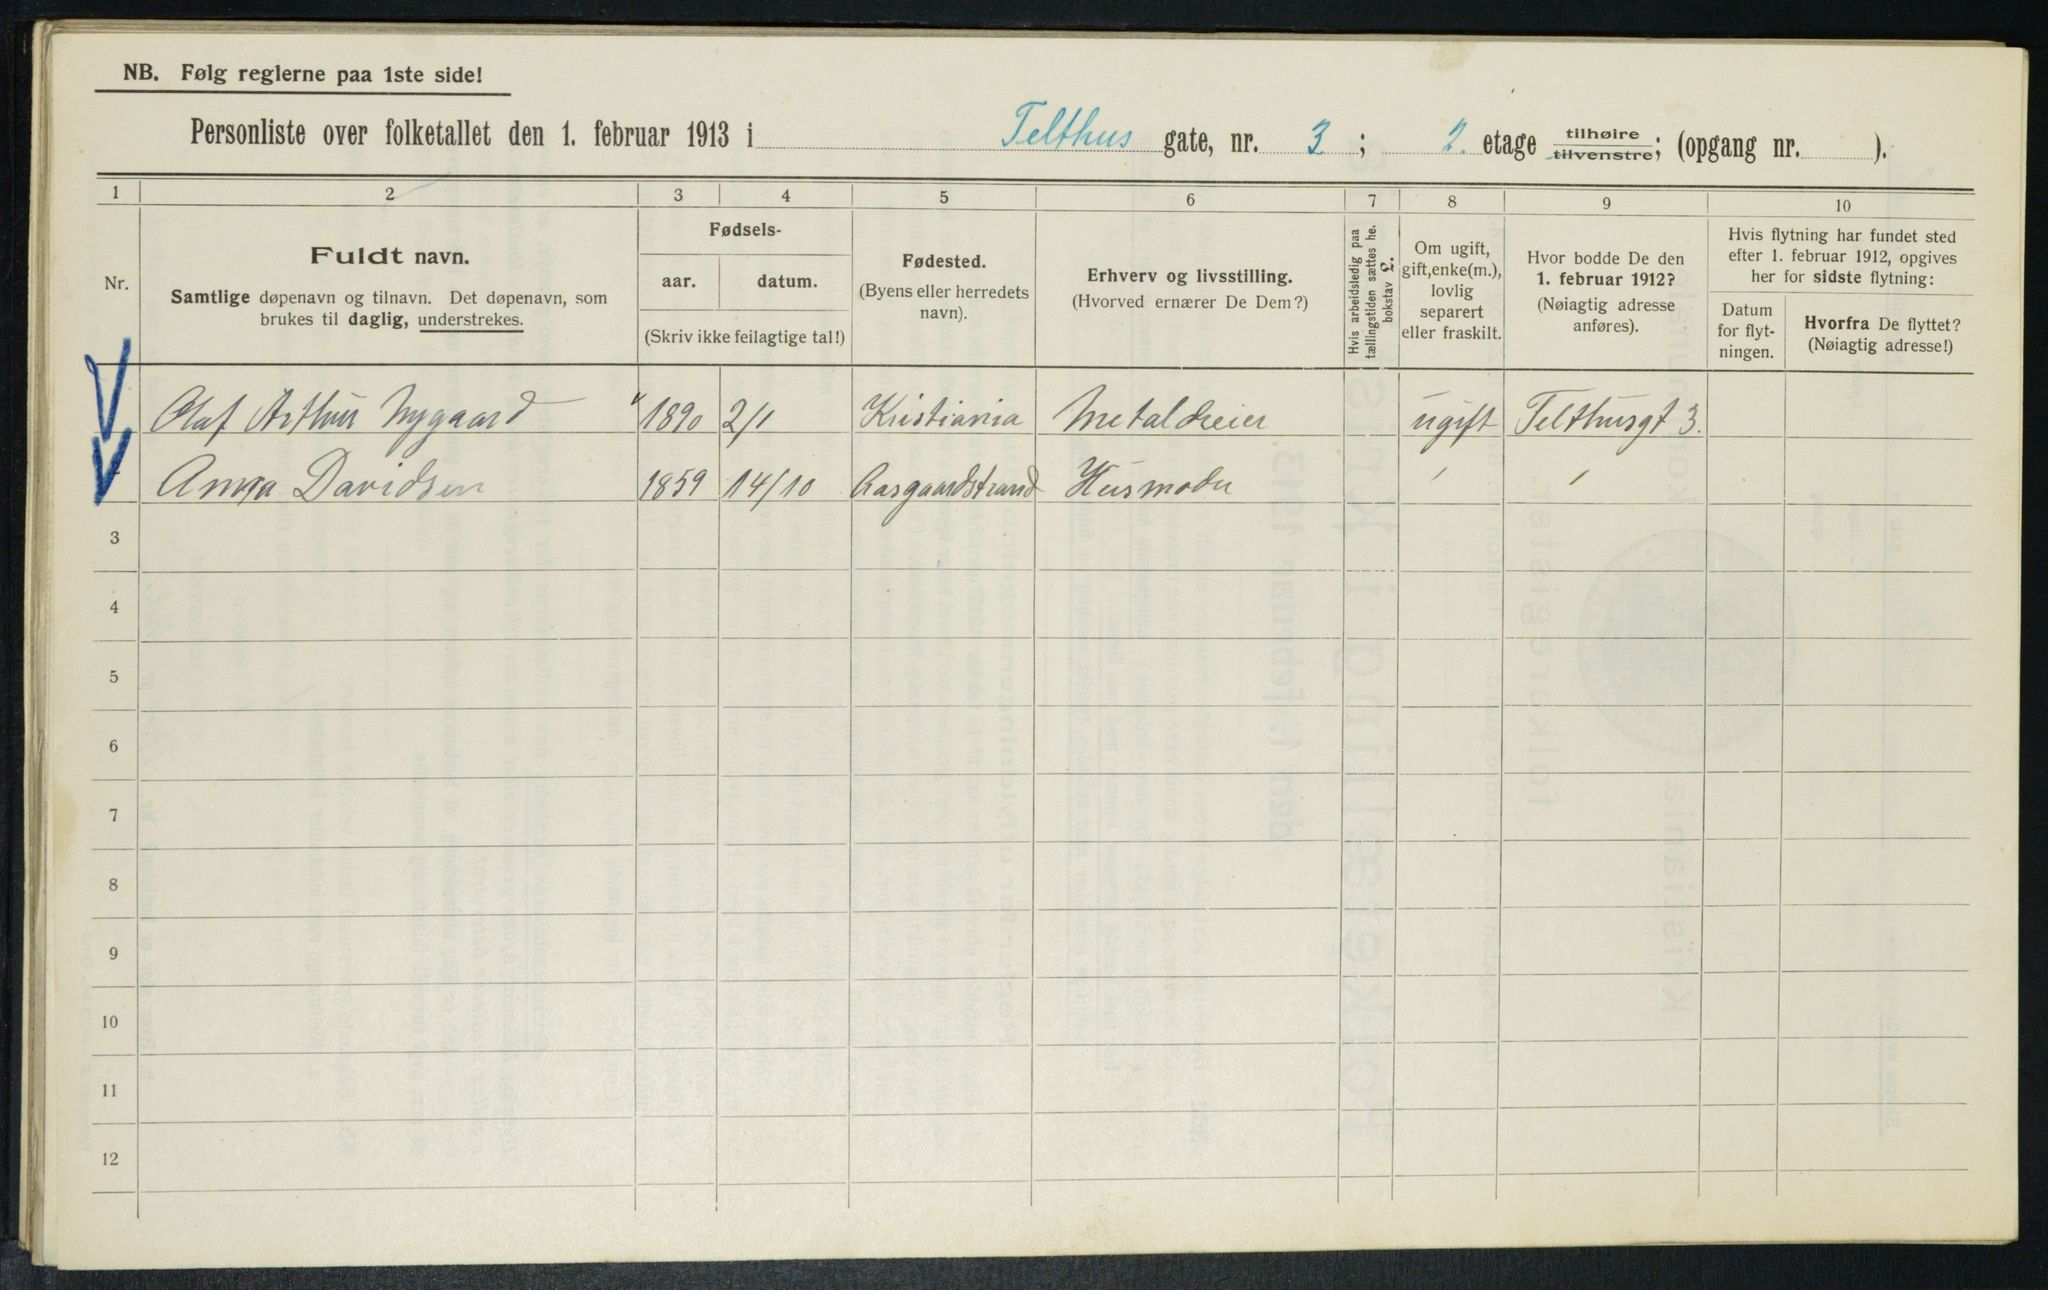 NB. Følg reglerne paa 1ste side!
Personliste over folketallet den 1. februar 1913 i Telthus gate, nr. 3; 2. etage tilhøire tilvenstre; (opgang nr. ).
1 2 3 4 5 6 7 8 9 10
Nr.
Fuldt navn.
Samtlige døpenavn og tilnavn. Det døpenavn, som
brukes til daglig, understrekes.
Fødsels-
aar. datum.
(Skriv ikke feilagtige tal!)
Fødested.
(Byens eller herredets
navn).
Erhverv og livsstilling.
(Hvorved ernærer De Dem?)
Hvis arbeidsledig paa
tællingstiden sættes he.
bokstav L.
Om ugift,
gift, enke(m.),
lovlig
separert
eller fraskilt.
Hvor bodde De den
1. februar 1912?
(Nøiagtig adresse
anføres).
Hvis flytning har fundet sted
efter 1. februar 1912, opgives
her for sidste flytning:
Datum
for flyt-
ningen.
Hvorfra De flyttet?
(Nøiagtig adresse!)
Olaf Arthur Nygaard " 1890 2/1 Kristiania Metaldreier ugift Telthusgt 3.
Anna Davidsen 1859 14/10 Aasgaardstrand Husmoder ′ ′
3
4
5
6
7
8
9
10
11
12